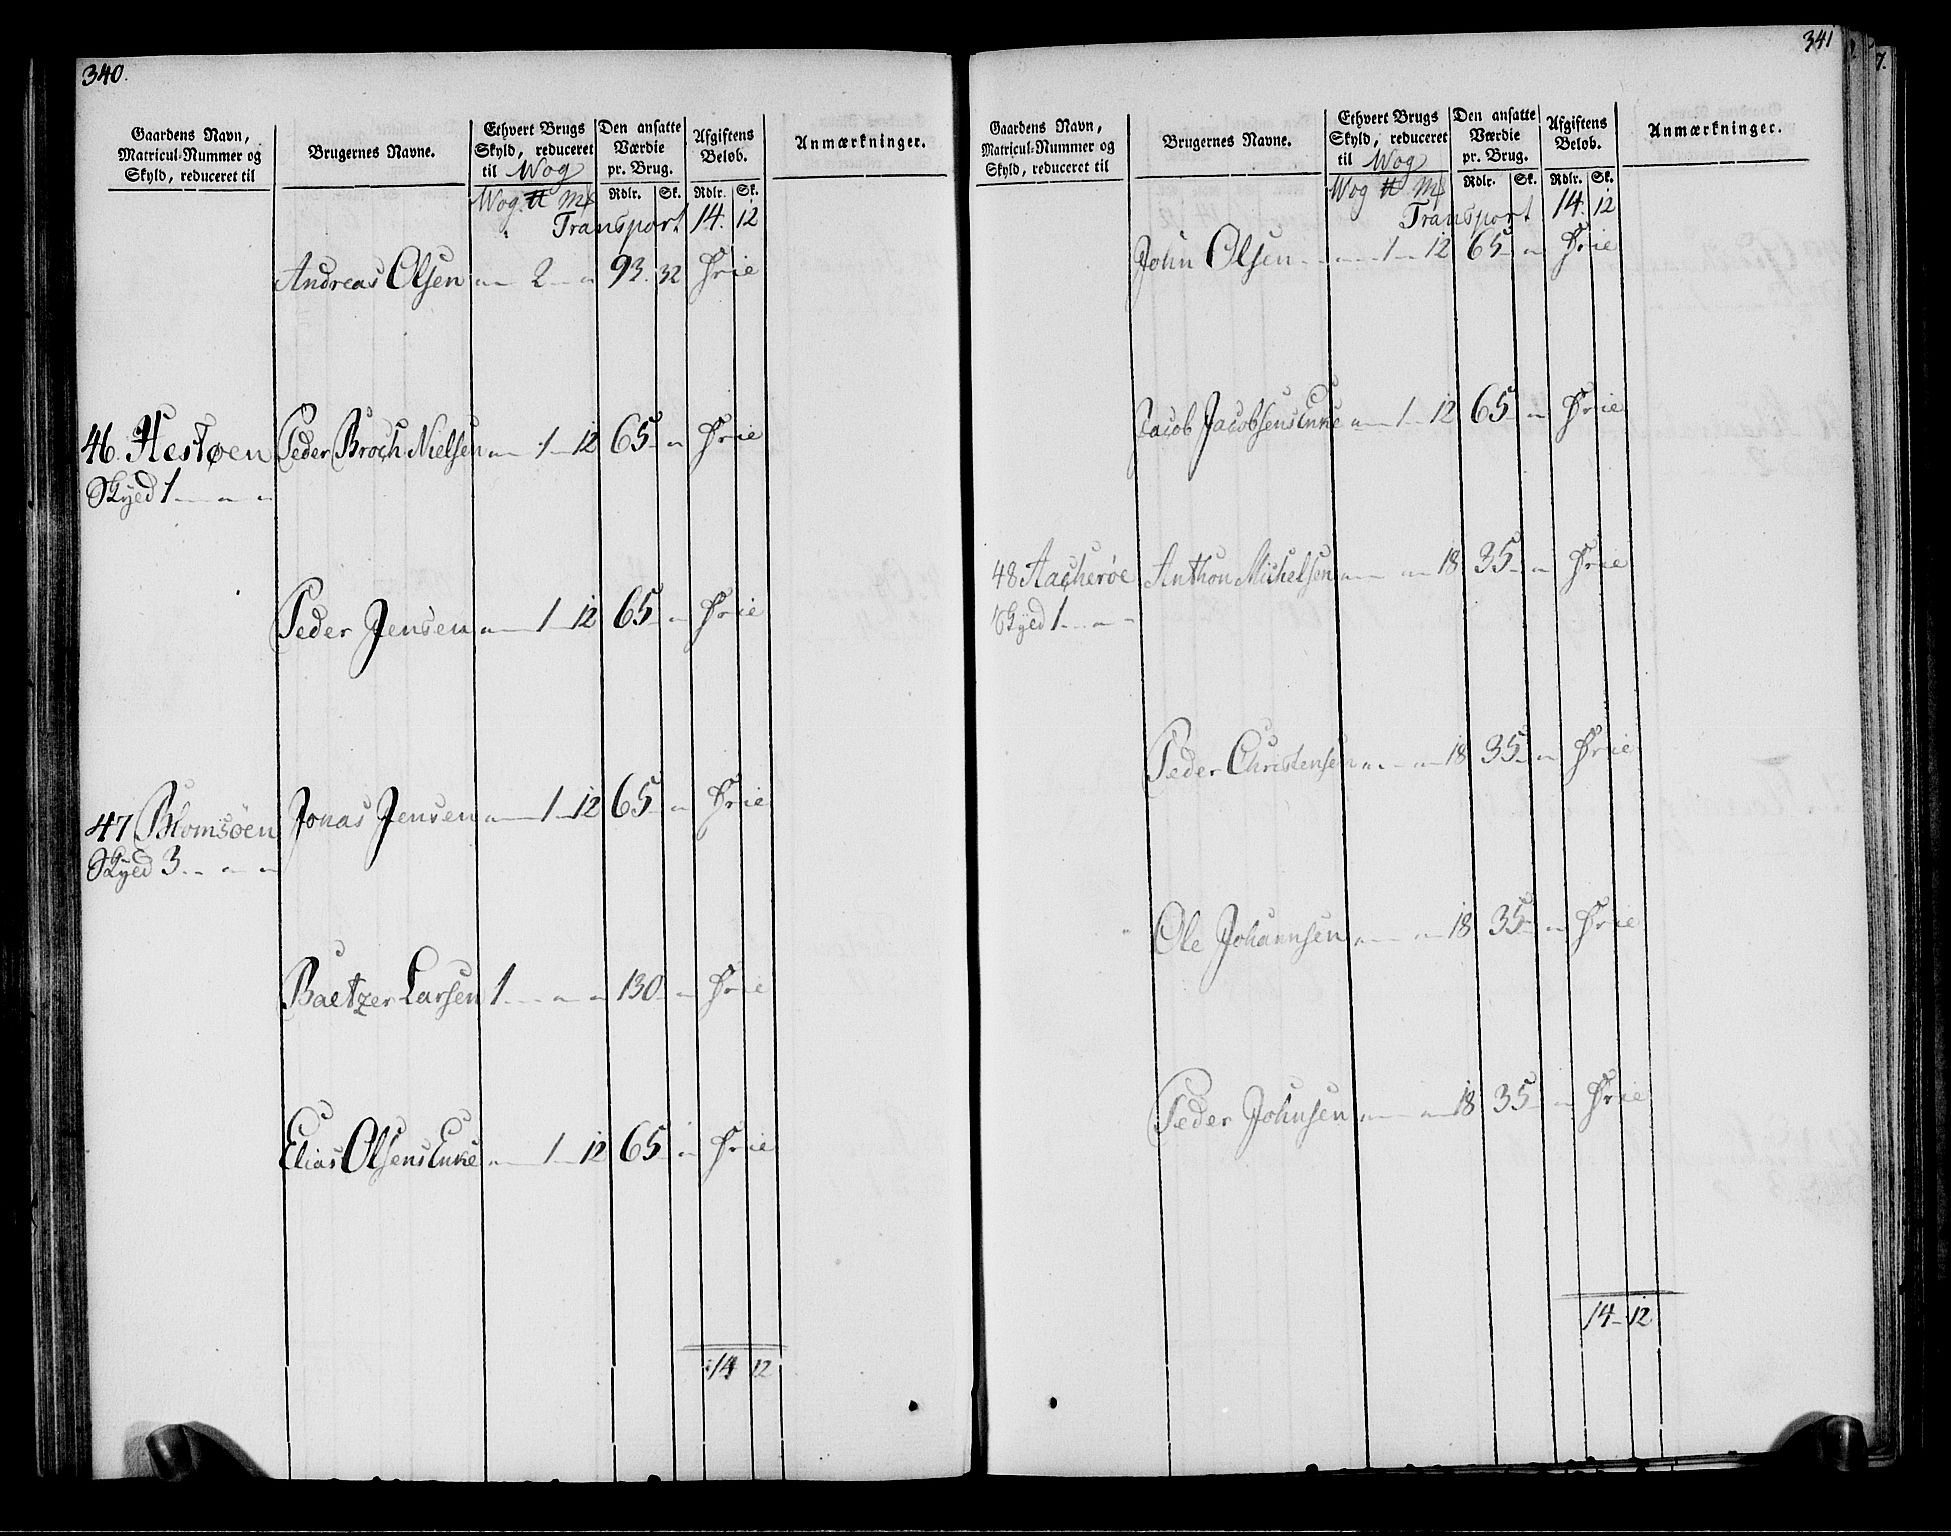 340.
Gaardens Navn, Matricul-Nummer og Skyld, reduceret til
Brugernes Navne.
Ethvert Brugs Skyld, reduceret til Wog
Den ansatte Værdie pr. Brug.
Afgiftens Beløb.
Anmærkninger.
Wog. ℔ Mk Rdlr. Sk. Rdlr. Sk.
Transport 14. 12
Andreas Olsen " 2 " 93. 32 Frie
46. Hestøen Peder Broch Nielsen " 1 12 65 " Frie
Skyed 1 " "
Peder Jensen " 1 12 65 " Frie
47 Blomsøen Jonas Jensen " 1 12 65 " Frie
Skyed 3 " "
Baltzer Larsen 1 " " 130 " Frie
Elias Olsens Enke " 1 12 65 " Frie
14 12
341
Gaardens Navn, Matricul-Nummer og Skyld, reduceret til
Brugernes Navne.
Ethvert Brugs Skyld, reduceret til Wog
Den ansatte Værdie pr. Brug.
Afgiftens Beløb.
Anmærkninger.
Wog ℔ Mk Rdlr. Sk. Rdlr. Sk.
Transport 14. 12
John Olsen " 1 12 65 " Frie
Jacob Jacobsens Enke " 1 12 65 " Frie
48 Aacherøe Anthon Michelsen " " 18 35 " Frie
Skyed 1 " "
Peder Christensen " " 18 35 " Frie
Ole Johannsen " " 18 35 " Frie
Peder Johnsen " " 18 35 " Frie
14 12